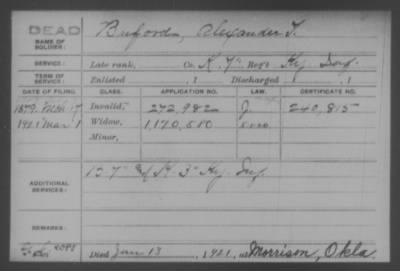 DEAD
NAME OF SOLDIER: Buford, Alexander T.
SERVICE: Late rank, Co. K, 7" Reg't Ky. Inf.
TERM OF SERVICE: Enlisted , 1 Discharged , 1
DATE OF FILING. CLASS. APPLICATION NO. LAW. CERTIFICATE NO.
1879. Mch 17 Invalid, 272,982 J. 240,815
1921 Mar 1 Widow, 1,170,580
Minor,
ADDITIONAL SERVICES: K. 3" Ky. Inf.
REMARKS:
Died Jan 13, 1921, at Morrison, Okla.